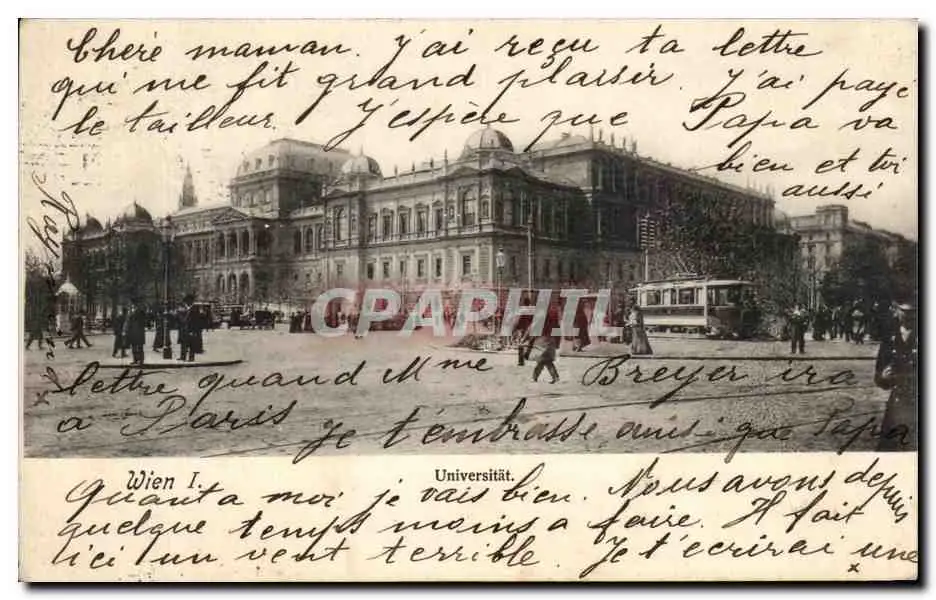 Chere maman. J'ai reçu ta lettre
qui me fit grand plarsir. J'ai payé
le tailleur. J'espère que Papa va
bien et toi
aussi
CPAPHIL
Wien I.
Universität.
Quant a moi je vais bien. Nous avons depuis
quelque temps moins a faire. Il fait
ici un vent terrible. Je t'ecrirai une
x
x lettre quand Mme Breyer ira
a Paris
Je t'embrasse ainsi que Papa